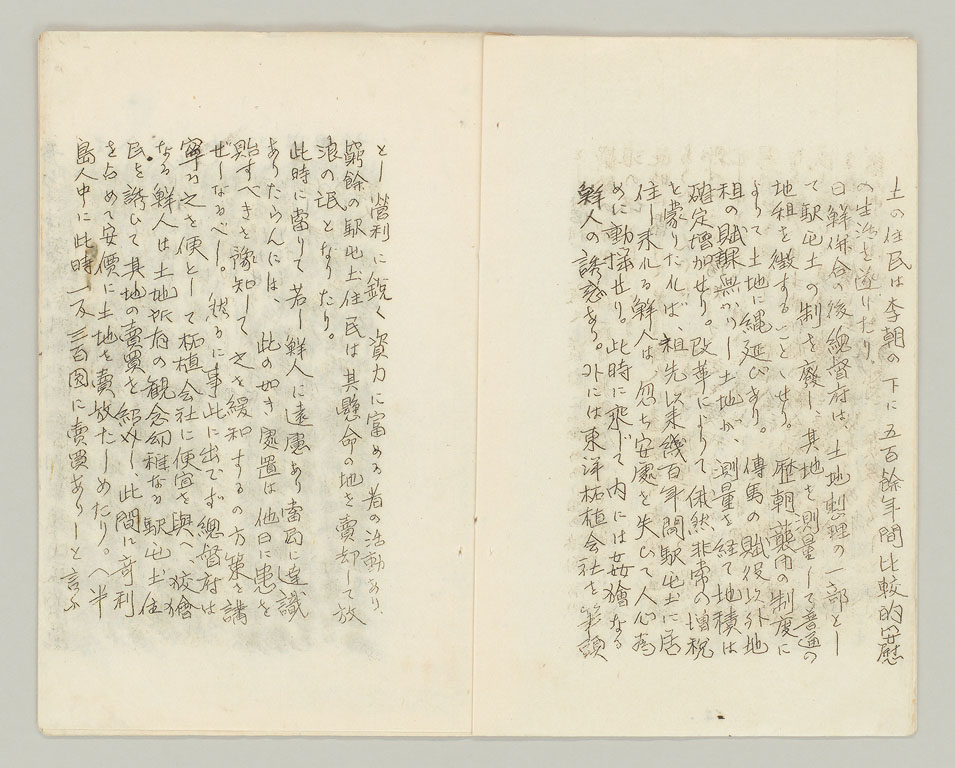 土の住民は李朝の下に五百餘年間比較的安慰
の生活を遂げたり
日鮮併合の後總督府は、土地整理の一部とし
て駅屯土の制を廢し、其地を測量して普通の
地租を徴することゝせり。歴朝襲用の制度に
よりて土地に縄延びあり。傳馬の賦役以外地
租の賦課無かりし土地が、測量を経て地積は
確定増加せり。改革によりて俄然非常の増税
と蒙りたれば、祖先以来幾百年間駅屯土に居
住し来れる鮮人は、忽ち安處を失ひて人心為
めに動揺せり。此時に乗じて内には姦獪なる
鮮人の誘惑あり。外には東洋拓植会社を筆頭
とし營利に鋭く資力に富める者の活動あり、
窮餘の駅屯土住民は其懸命の地を賣却して放
浪の氓となりたり。
此時に當りて若し鮮人に遠慮あり當局に達識
ありたらんには、此の如き處置は他日に患を
貽すべきを豫知して之を緩和するの方策を講
ぜしなるべし。然るに事此に出でず總督府は
寧ろ之を便として拓植会社に便宜を與へ、狡獪
なる鮮人は土地所有の観念幼稚なる駅屯土住
民を誘ひて其地の賣買を紹介し、此間に奇利
を占めて安價に土地を賣放たしめたり。（半
島人中に此時一反三百圓に賣買ありしと言ふ